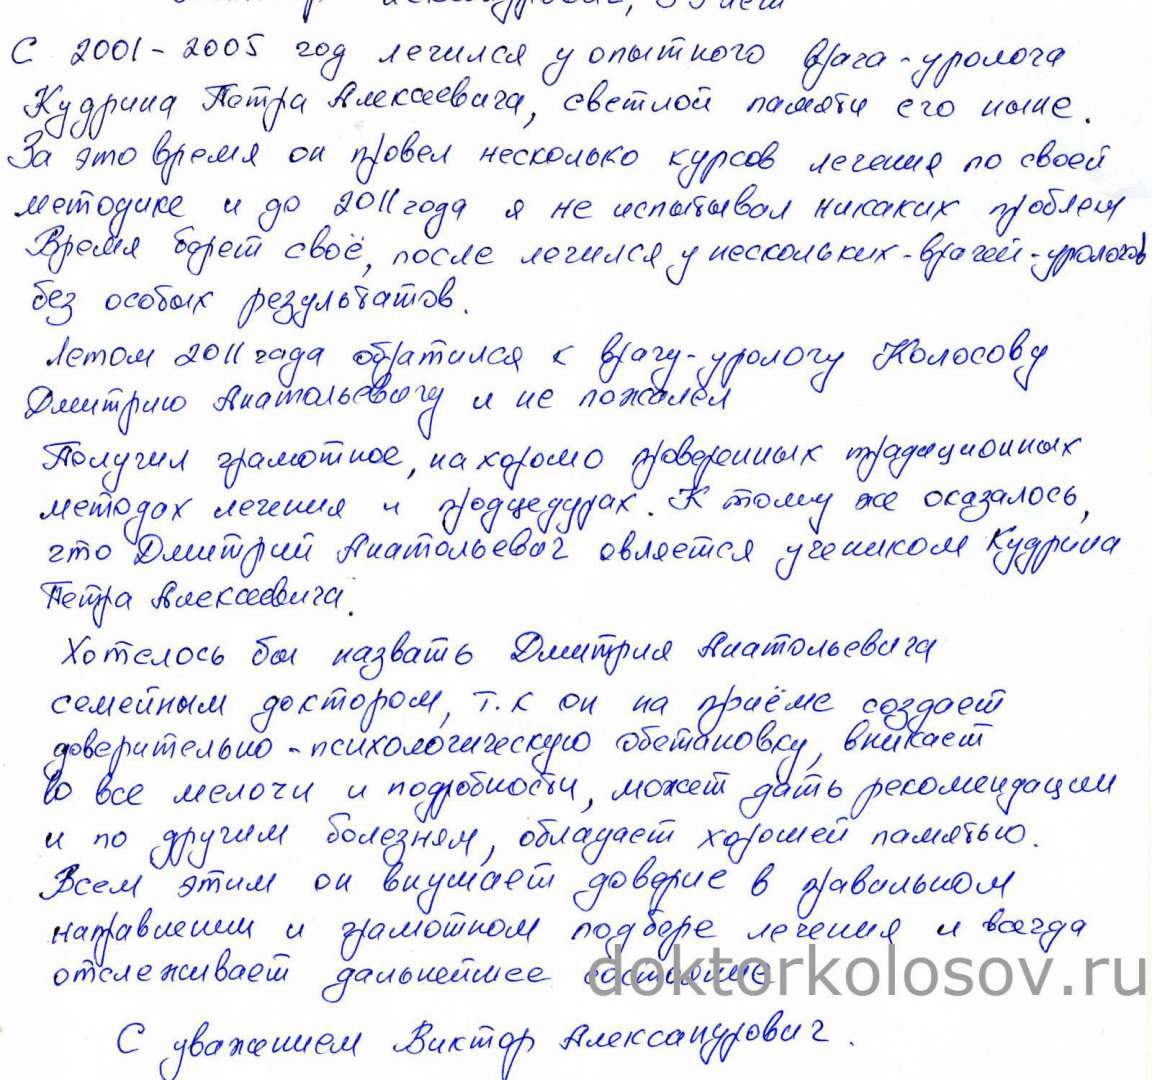 Александрович, 55 лет
С 2001-2005 год лечился у опытного врача-уролога
Кудрина Петра Алексеевича, светлой памяти его ныне.
За это время он провел несколько курсов лечения по своей
методике и до 2011 года я не испытывал никаких проблем
Время берет своё, после лечился у нескольких-врачей-урологов
без особых результатов.
Летом 2011 года обратился к врачу-урологу Колосову
Дмитрию Анатольевичу и не пожалел
Получил грамотное, на хорошо проверенных традиционных
методах лечения и продцедурах. К тому же оказалось,
что Дмитрий Анатольевич является учеником Кудрина
Петра Алексеевича.
Хотелось бы назвать Дмитрия Анатольевича
семейным доктором, т.к он на приёме создает
доверительно-психологическую обстановку, вникает
во все мелочи и подробности, может дать рекомендации
и по другим болезням, обладает хорошей памятью.
Всем этим он внушает доверие в правильном
направлении и грамотном подборе лечения и всегда
отслеживает дальнейшее состояние
doktorkolosov.ru
С уважением Виктор Александрович.